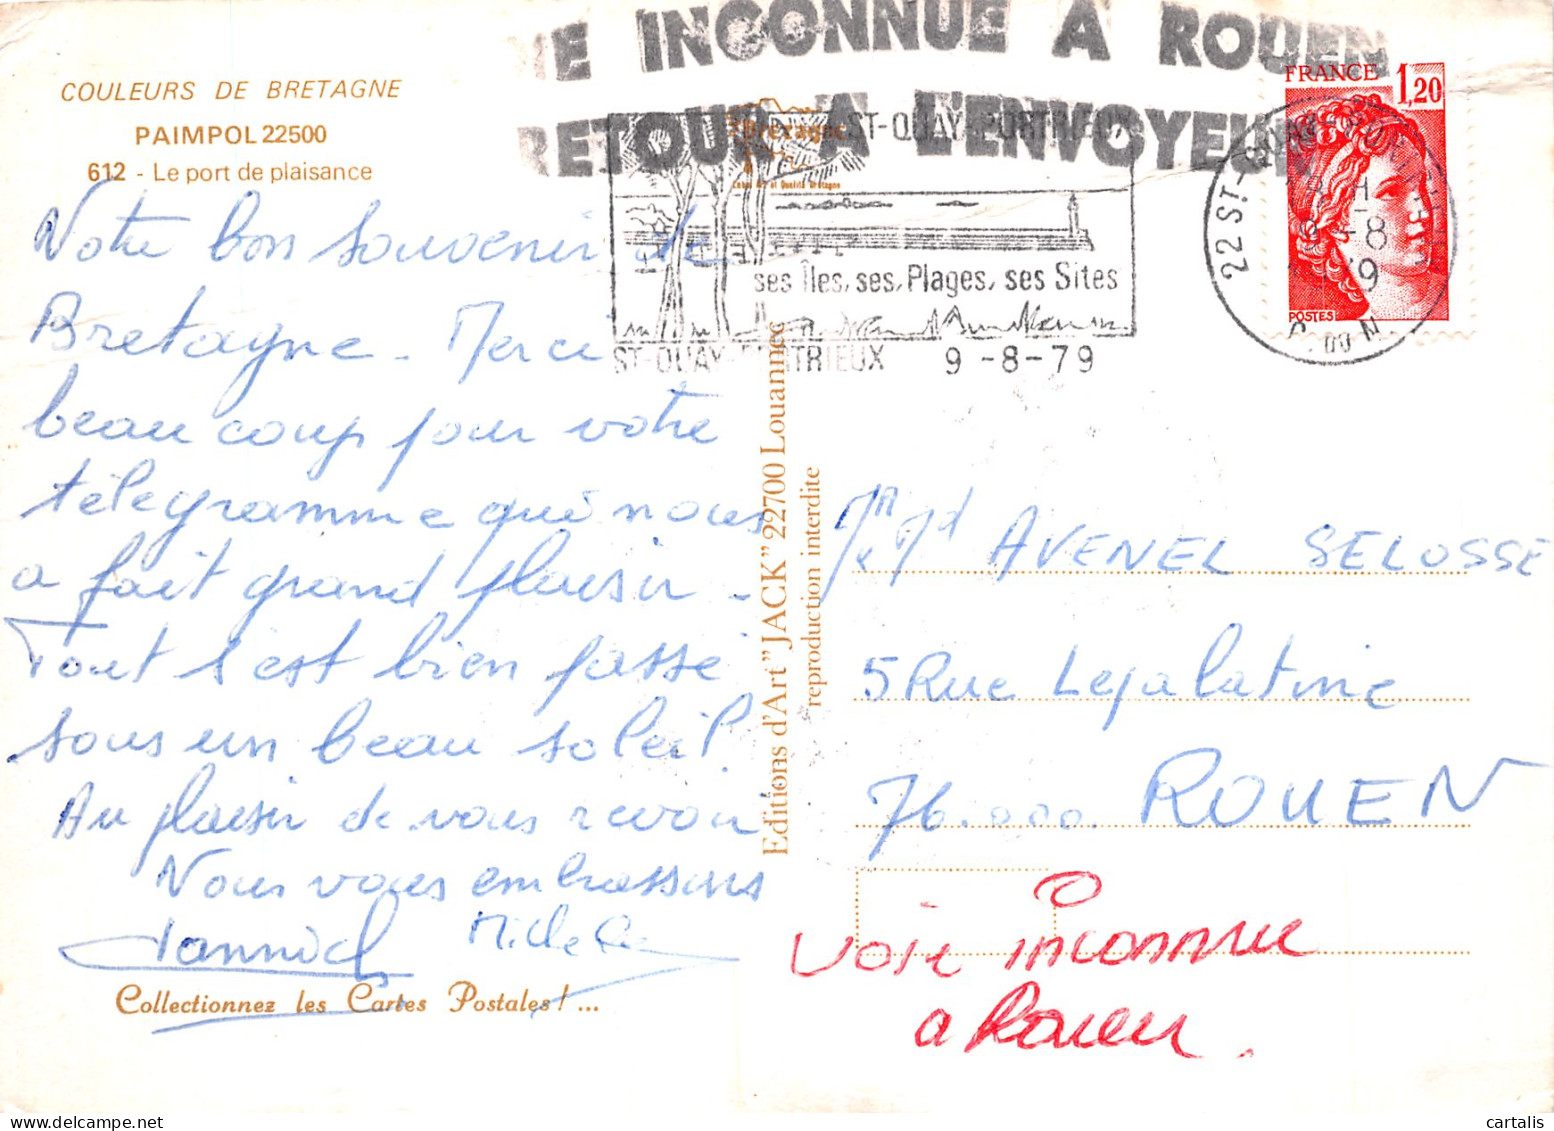 COULEURS DE BRETAGNE
PAIMPOL 22500
612 - Le port de plaisance
Votre bon souvenir de
Bretagne - Merci
beaucoup pour votre
télégramme qui nous
a fait grand plaisir -
Tout s'est bien passé
sous un beau soleil.
Au plaisir de vous revoir
Nous vous embrassons
Yannick Michele
Collectionnez les Cartes Postales! ...
Editions d'Art "JACK" 22700 Louannec
reproduction interdite
IE INCONNUE A ROUEN
RETOUR A L'ENVOYEUR
Bretagne
ST-QUAY PORTRIEUX
ses Îles, ses Plages, ses Sites
ST-QUAY PORTRIEUX 9-8-79
22 ST-QUAY-PORTRIEUX
C. DU N.
FRANCE 1,20
POSTES
AVENEL SELOSSE
5 Rue Lejalatine
76.000. ROUEN
Voie inconnue
a Rouen.
cartalis